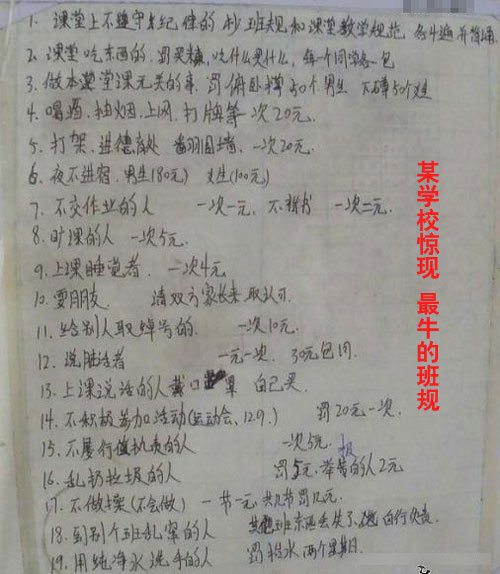 1. 课堂上不遵守纪律的 抄班规和课堂教学规范, 各十遍并背诵
2. 课堂吃东西的. 罚买糖, 吃什么买什么, 每一个同学各一包
3. 做本堂课无关的事. 罚俯卧撑50个男生 下蹲50个女生
4. 喝酒、抽烟、上网、打牌等一次20元.
5. 打架、进德育处 翻围墙、一次20元.
6. 夜不进宿、男生(80元) 女生(100元)
7. 不交作业的人 一次一元, 不背书 一次二元.
8. 旷课的人 一次5元.
9. 上课睡觉者. 一次4元
10. 耍朋友. 请双方家长来取认可.
11. 给别人取绰号的. 一次10元.
12. 说脏话者 一元一次. 30元包月.
13. 上课说话的人戴口罩 自己买.
14. 不积极参加活动(运动会、12.9.) 罚20元一次.
15. 不履行值执责的人 一次5元.
16. 乱扔垃圾的人 罚5元. 举报的人2元
17. 不做操(不会做) 一节一元 共几节罚几元.
18. 到别个班乱窜的人 其班东西丢失了 自行负责.
19. 用纯净水洗手的人 罚抬水两个星期.
某学校惊现 最牛的班规